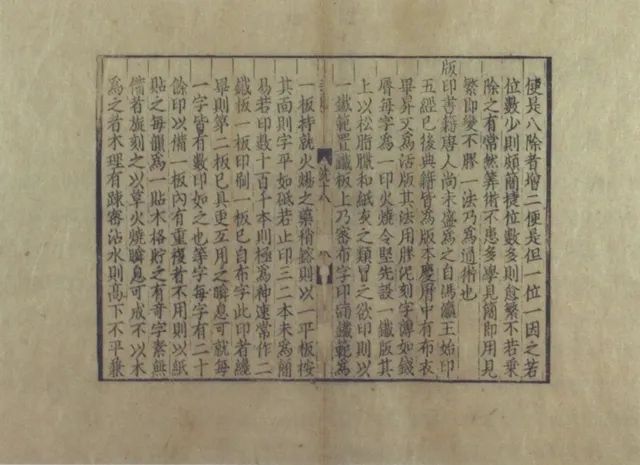 便是八除者增二便是但一位一因之若
位數少則頗簡捷位數多則愈繁不若乗
除之有常然筭術不患多學見簡即用見
繁即變不膠一法乃爲通術也
版印書籍唐人尚未盛爲之自馮瀛王始印
五經已後典籍皆爲版本慶曆中有布衣
畢昇又爲活版其法用膠泥刻字薄如錢
脣每字爲一印火燒令堅先設一鐵版其
上以松脂臘和紙灰之類冒之欲印則以
一鐵範置鐵板上乃密布字印滿鐵範爲
十八
八
一板持就火煬之藥稍鎔則以一平板按
其面則字平如砥若止印三二本未爲簡
易若印數十百千本則極爲神速常作二
鐵板一板印刷一板已自布字此印者纔
畢則第二板已具更互用之瞬息可就每
一字皆有數印如之也等字每字有二十
餘印以備一板內有重複者不用則以紙
貼之每韻爲一貼木格貯之有奇字素無
備者旋刻之以草火燒瞬息可成不以木
爲之者木理有疎密沾水則高下不平兼